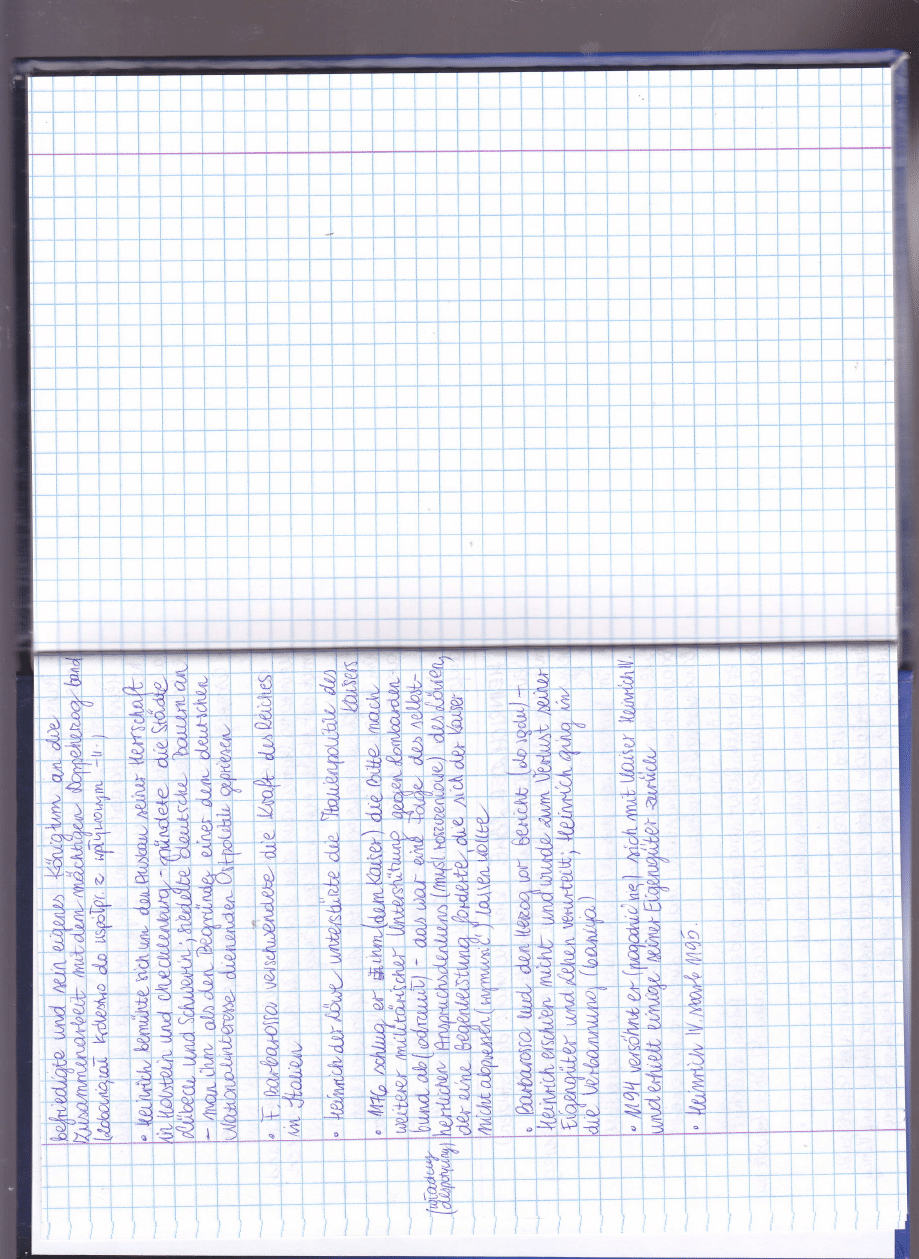 befriedigte und sein eigenes Königtum an die
Zusammenarbeit mit dem mächtigen Doppelherzog band
(zobowiązał królestwo do współpr. z wpływowym -II-)
• Heinrich bemühte sich um den Ausbau seiner Herrschaft
in Holstein und Mecklenburg - gründete die Städte
Lübeck und Schwerin; siedelte deutsche Bauern an
- man ihn als den Begründer einer den deutschen
Nationalinteresse dienenden Ostpolitik gepriesen
• F. Barbarossa verschwendete die Kraft des Reiches
in Italien
• Heinrich der Löwe unterstützte die Italienpolitik des
Kaisers
• 1176 schlug er ihm (dem Kaiser) die Bitte nach
weiterer militärischer Unterstützung gegen Lombarden
bund ab (odmówił) - das war eine Folge des selbst-
(władczy
(despotyczny) herrlichen Anspruchsdenkens (myśl roszczeniowe) des Löwen,
der eine Gegenleistung forderte, die sich der Kaiser
nicht abpressen (wymusić) lassen wollte
• Barbarossa lud den Herzog vor Gericht (do sądu) -
Heinrich erschien nicht und wurde zum Verlust seiner
Eigengüter und Lehen verurteilt; Heinrich ging in
die Verbannung (banicja)
• 1194 versöhnt er (pogodził się) sich mit Kaiser Heinrich IV.
und erhielt einige seiner Eigengüter zurück
• Heinrich IV. starb 1195.